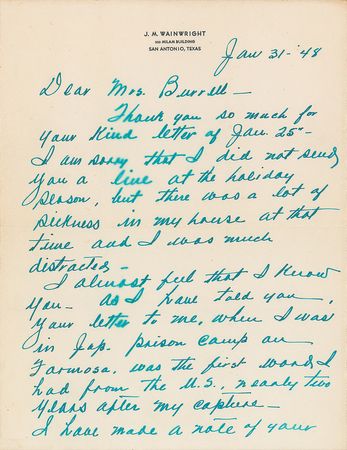 J. M. WAINWRIGHT
MILAM BUILDING
SAN ANTONIO, TEXAS
Jan 31-'48
Dear Mrs. Burrell-
Thank you so much for
your kind letter of Jan. 25"-
I am sorry that I did not send
you a line at the holiday
season, but there was a lot of
sickness in my house at that
time and I was much
distracted-
I almost feel that I know
you- As I have told you,
your letter to me, when I was
in Jap. prison camp on
Formosa, was the first word I
had from the U.S., nearly two
years after my capture-
I have made a note of your